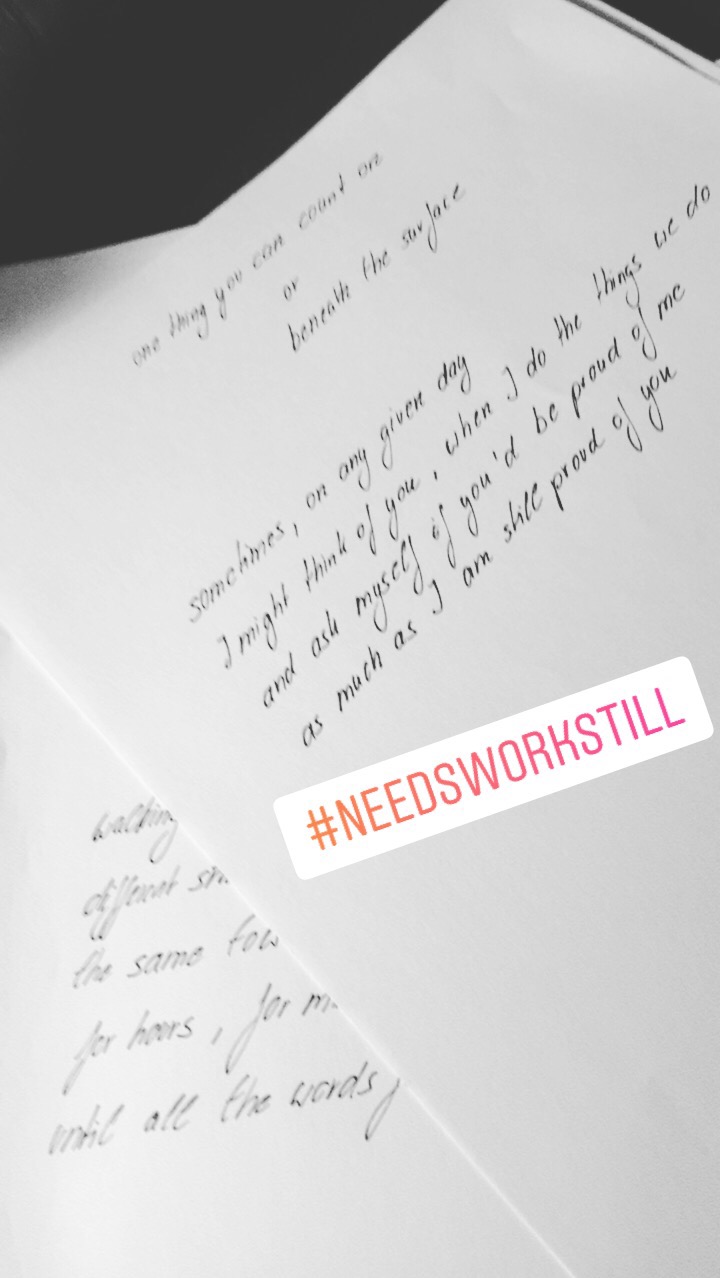 one thing you can count on
or
beneath the surface
sometimes, on any given day
I might think of you, when I do the things we do
and ask myself if you'd be proud of me
as much as I am still proud of you
#NEEDSWORKSTILL
walking
different
the same
for hours, for
until all the words